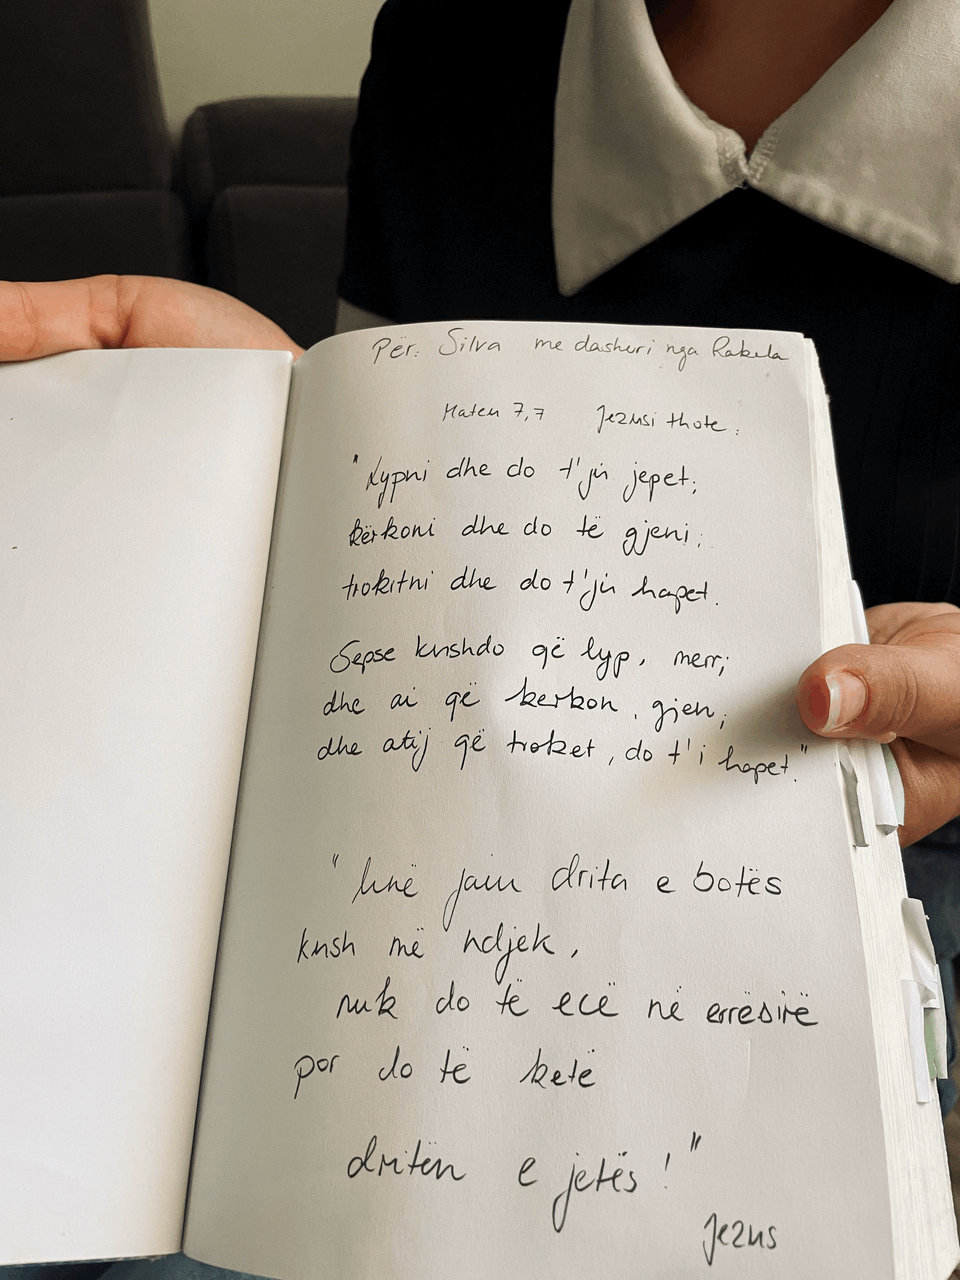 Për: Silva me dashuri nga Rakela
Mateu 7,7 Jezusi thotë:
"Lypni dhe do t'ju jepet;
kërkoni dhe do të gjeni;
trokitni dhe do t'ju hapet.
Sepse kushdo që lyp, merr;
dhe ai që kerkon, gjen;
dhe atij që troket, do t'i hapet."
"Unë jam drita e botës
kush më ndjek,
nuk do të ecë në errësirë
por do të ketë
dritën e jetës!"
Jezus